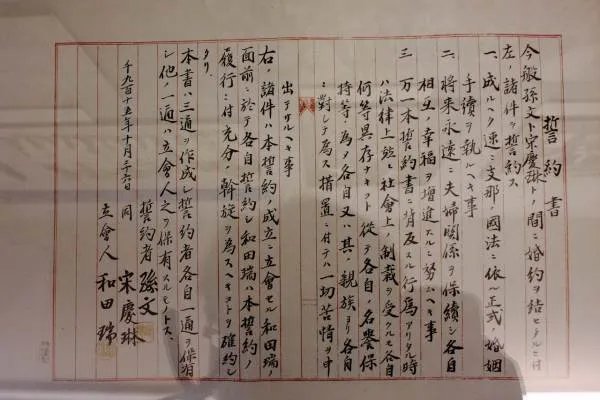 誓約書
今般孫文ト宋慶琳トノ間ニ婚約ヲ結ヒタルニ付
左ノ諸件ヲ誓約ス
一、成ルヘク速ニ支那ノ國法ニ依ル正式ノ婚姻
手續ヲ執ルヘキ事
二、將来永遠ニ夫婦関係ヲ保續シ各自
相互ノ幸福ヲ増進スルニ努ムヘキ事
三 万一本誓約書ニ背反スル行為アリタル時
ハ法律上並ニ社會上ノ制裁ヲ受クルモ各自
何等異存ナキコト 従テ各自ノ名譽保
持等ノ為メ各自又ハ其ノ親族ヨリ各自
ニ對シテ為ス措置ニ付テハ一切苦情ヲ申
出テサルヘキ事
右ノ諸件ハ本誓約ノ成立ニ立會セル和田瑞ノ
面前ニ於テ各自誓約シ和田瑞ハ本誓約ノ
履行ニ付充分ノ斡旋ヲ為スヘキコトヲ確約シ
タリ
本書ハ三通ヲ作成シ誓約者各自一通ヲ保有
シ他ノ一通ハ立會人之ヲ保有スルモノトス
千九百十五年十月二十六日
誓約者 孫文
同 宋慶琳
立會人 和田瑞